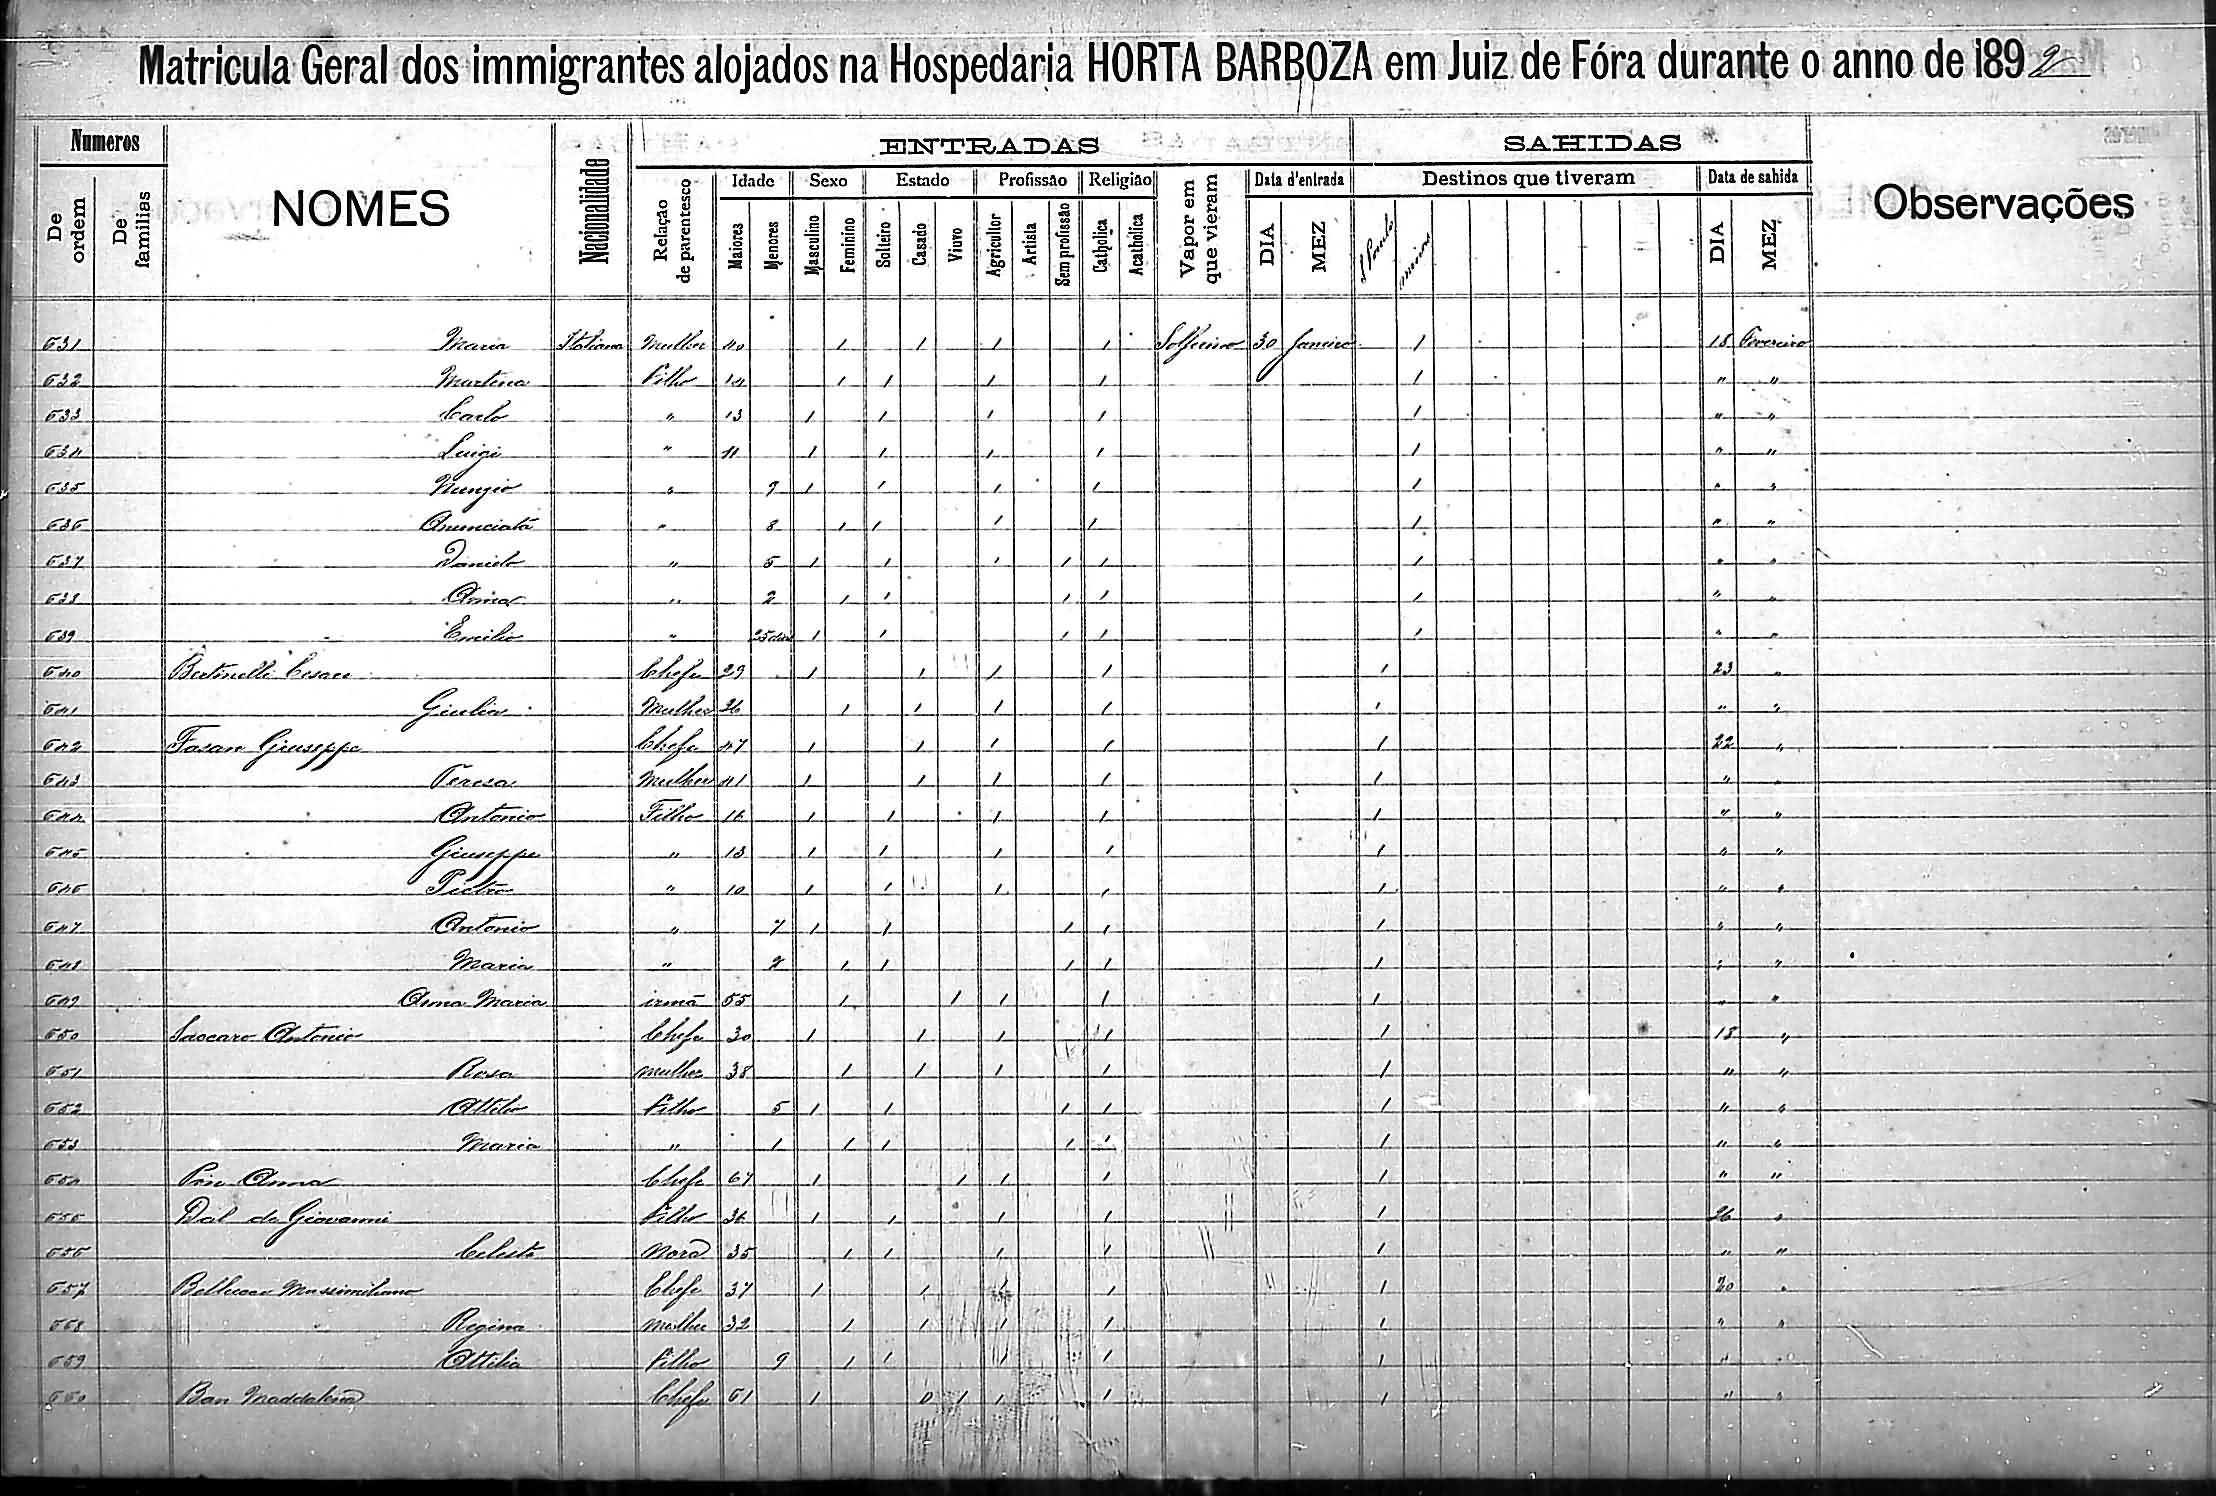 Matricula Geral dos immigrantes alojados na Hospedaria HORTA BARBOZA em Juiz de Fóra durante o anno de 1892
Numeros ENTRADAS SAHIDAS
De ordem De familias NOMES Nacionalidade Relação de parentesco Idade Sexo Estado Profissão Religião Vapor em que vieram Data d'entrada Destinos que tiveram Data de sahida Observações
Maiores Menores Masculino Feminino Solteiro Casado Viuvo Agricultor Artista Sem profissão Catholica Acatholica DIA MEZ S Paulo DIA MEZ
631 Maria Italiana Mulher 40 1 1 1 1 Solferino 30 Janeiro 1 18 Fevereiro
632 Martina Filho 14 1 1 1 1 1 " "
633 Carlo " 13 1 1 1 1 1 " "
634 Luigi " 11 1 1 1 1 1 " "
635 Nunzio " 9 1 1 1 1 1 " "
636 Anunciata " 8 1 1 1 1 1 " "
637 Danielo " 5 1 1 1 1 1 1 " "
638 Anna " 2 1 1 1 1 1 " "
639 Emilio " 25 dias 1 1 1 1 1 " "
640 Bertinelli Cesare Chefe 29 1 1 1 1 1 23 "
641 Giulia Mulher 26 1 1 1 1 1 " "
642 Fasan Giuseppe Chefe 47 1 1 1 1 1 22 "
643 Teresa Mulher 41 1 1 1 1 1 " "
644 Antonio Filho 16 1 1 1 1 1 " "
645 Giuseppe " 13 1 1 1 1 1 " "
646 Pietro " 10 1 1 1 1 1 " "
647 Antonio " 7 1 1 1 1 1 " "
648 Maria " 2 1 1 1 1 1 " "
649 Anna Maria irmã 55 1 1 1 1 1 " "
650 Saccaro Antonio Chefe 30 1 1 1 1 1 18 "
651 Rosa mulher 38 1 1 1 1 1 " "
652 Attilio Filho 5 1 1 1 1 1 " "
653 Maria " 1 1 1 1 1 1 " "
654 Pin Anna Chefe 67 1 1 1 1 1 " "
655 Dal Giovanni Filho 36 1 1 1 1 1 26 "
656 Celeste Nora 35 1 1 1 1 1 " "
657 Bellucco Massimiliano Chefe 37 1 1 1 1 1 20 "
658 Regina mulher 32 1 1 1 1 1 " "
659 Attilia Filho 9 1 1 1 1 1 " "
660 Ban Maddalena Chefe 61 1 0 1 1 1 1 " "